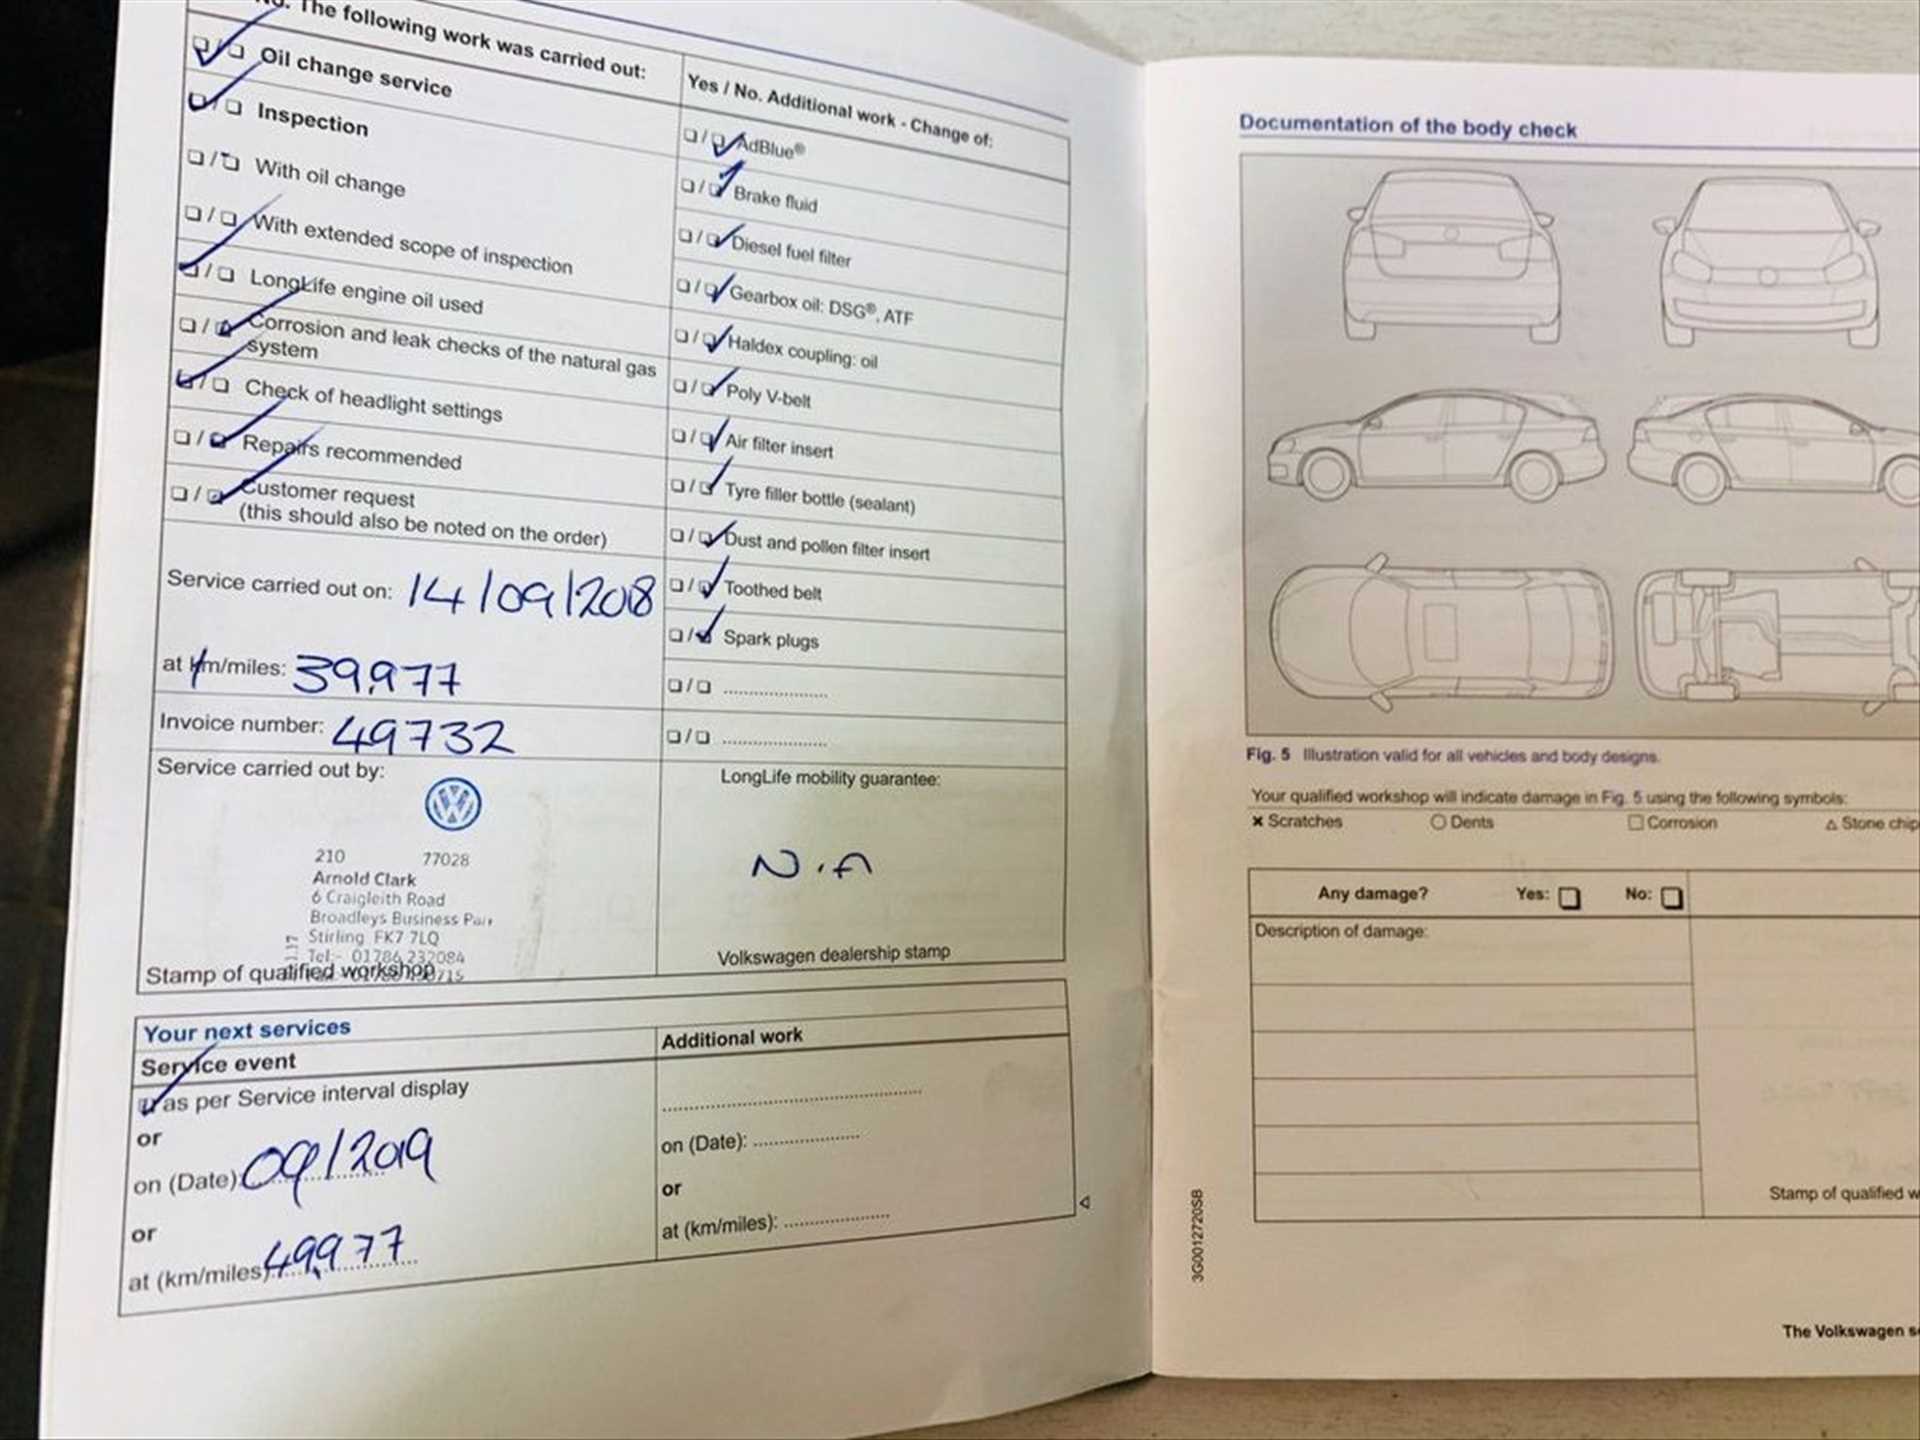 No. The following work was carried out:
Oil change service
Inspection
With oil change
With extended scope of inspection
LongLife engine oil used
Corrosion and leak checks of the natural gas
system
Check of headlight settings
Repairs recommended
Customer request
(this should also be noted on the order)
Service carried out on: 14/09/2018
at km/miles: 39,977
Invoice number: 49732
Service carried out by:
210 77028
Arnold Clark
6 Craigleith Road
Broadleys Business Park
Stirling FK7 7LQ
Tel:- 01786 232084
Stamp of qualified workshop
Yes / No. Additional work - Change of:
AdBlue®
Brake fluid
Diesel fuel filter
Gearbox oil: DSG®, ATF
Haldex coupling: oil
Poly V-belt
Air filter insert
Tyre filler bottle (sealant)
Dust and pollen filter insert
Toothed belt
Spark plugs
LongLife mobility guarantee:
N.A
Volkswagen dealership stamp
Your next services
Service event
as per Service interval display
or
on (Date): 09/2019
or
at (km/miles): 49,977
Additional work
on (Date):
or
at (km/miles):
Documentation of the body check
Fig. 5 Illustration valid for all vehicles and body designs.
Your qualified workshop will indicate damage in Fig. 5 using the following symbols:
Scratches Dents Corrosion Stone chip
Any damage? Yes: No:
Description of damage:
Stamp of qualified w
3G0012720SB
The Volkswagen s